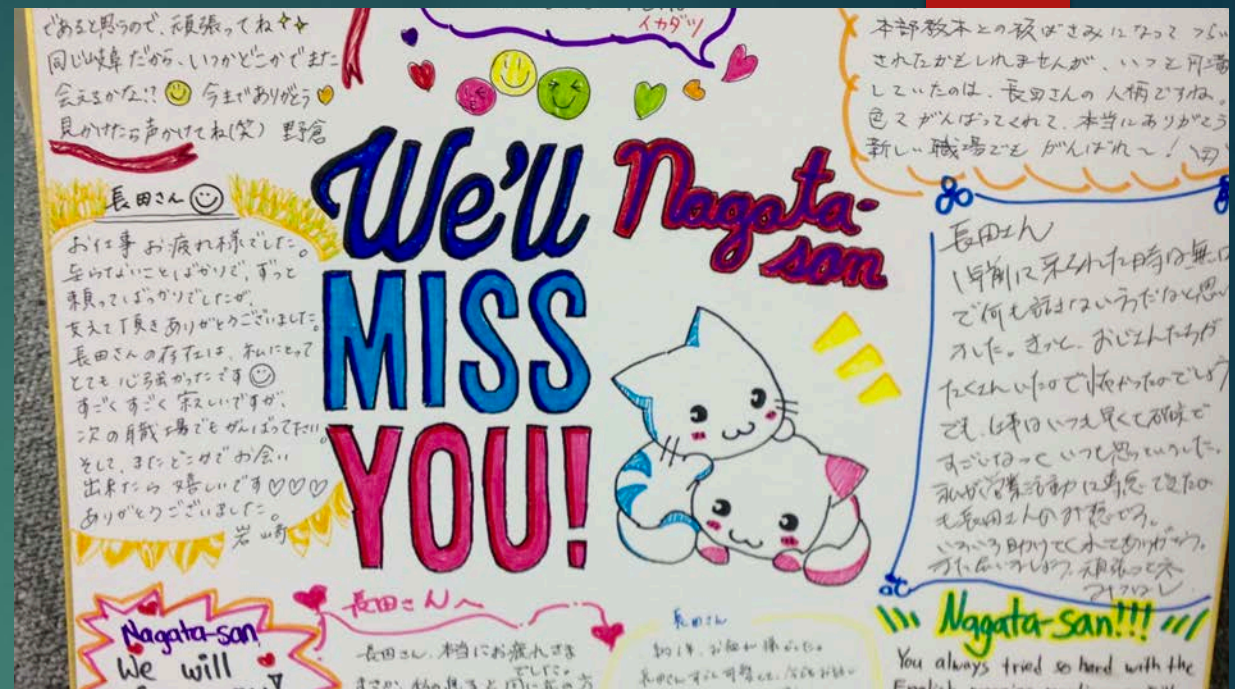 であると思うので、頑張ってね
同じ岐阜だから、いつかどこかでまた
会えるかな!? 今までありがとう
見かけたら声かけてね(笑) 野倉
イカダツ
本部教本との板ばさみになって つらい
されたかもしれませんが、いつも円満
していたのは、長田さんの人柄ですね。
色々がんばってくれて、本当にありがとう
新しい職場でも がんばれ〜!
We'll
MISS
YOU!
Nagata-
san
長田さん
お仕事お疲れ様でした。
至らないことばかりで、ずっと
頼ってばっかりでしたが、
支えて頂きありがとうございました。
長田さんの存在は、私にとって
とても心強かったです
すごくすごく寂しいですが、
次の職場でもがんばって下さい。
そして、またどこかでお会い
出来たら嬉しいです♡♡♡
ありがとうございました。
岩崎
長田さん
1年前に来られた時は無口
で何も話さない子だなと思い
ました。きっと、おじさんたちが
たくさんいたので怖かったのでしょう
でも、仕事はいつも早くて確実で
すごいなっていつも思っていました。
私が営業活動に専念できたの
も長田さんのお蔭です。
いろいろ助けてくれてありがとう。
また会いましょう。頑張って
Nagata-san,
We will
長田さん〜
長田さん、本当にお疲れさま
でした。
まさか、私の息子と同じ
長田さん
約1年、お疲れ様でした。
Nagata-san!!!
You always tried so hard with the
English